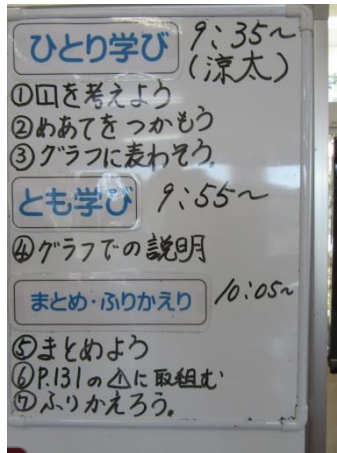 ひとり学び 9:35~
(涼太)
①1を考えよう
②めあてをつかもう
③グラフに表わそう。
とも学び 9:55~
④グラフでの説明
まとめ・ふりかえり 10:05~
⑤まとめよう
⑥P.131の⚠に取組む
⑦ふりかえろう。